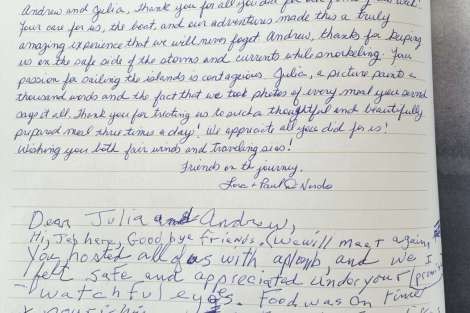 Andrew and Julia, thank you for all you did for
Your care for us, the boat, and our adventures made this a truly
amazing experience that we will never forget. Andrew, thanks for keeping
us on the safe side of the storms and currents while snorkeling. Your
passion for sailing the islands is contagious. Julia, a picture paints a
thousand words and the fact that we took photos of every meal you served
says it all. Thank you for treating us to such a thoughtful and beautifully
prepared meal three times a day! We appreciate all you did for us!
Wishing you both fair winds and traveling seas!
Friends on the journey,
Lora + Paul
Dear Julia and Andrew,
Hi, Jeb here, Goodbye friends. (we will meet again
You hosted all of us with aplomb, and we I
felt safe and appreciated under your (promise
watchful eyes. Food was on time